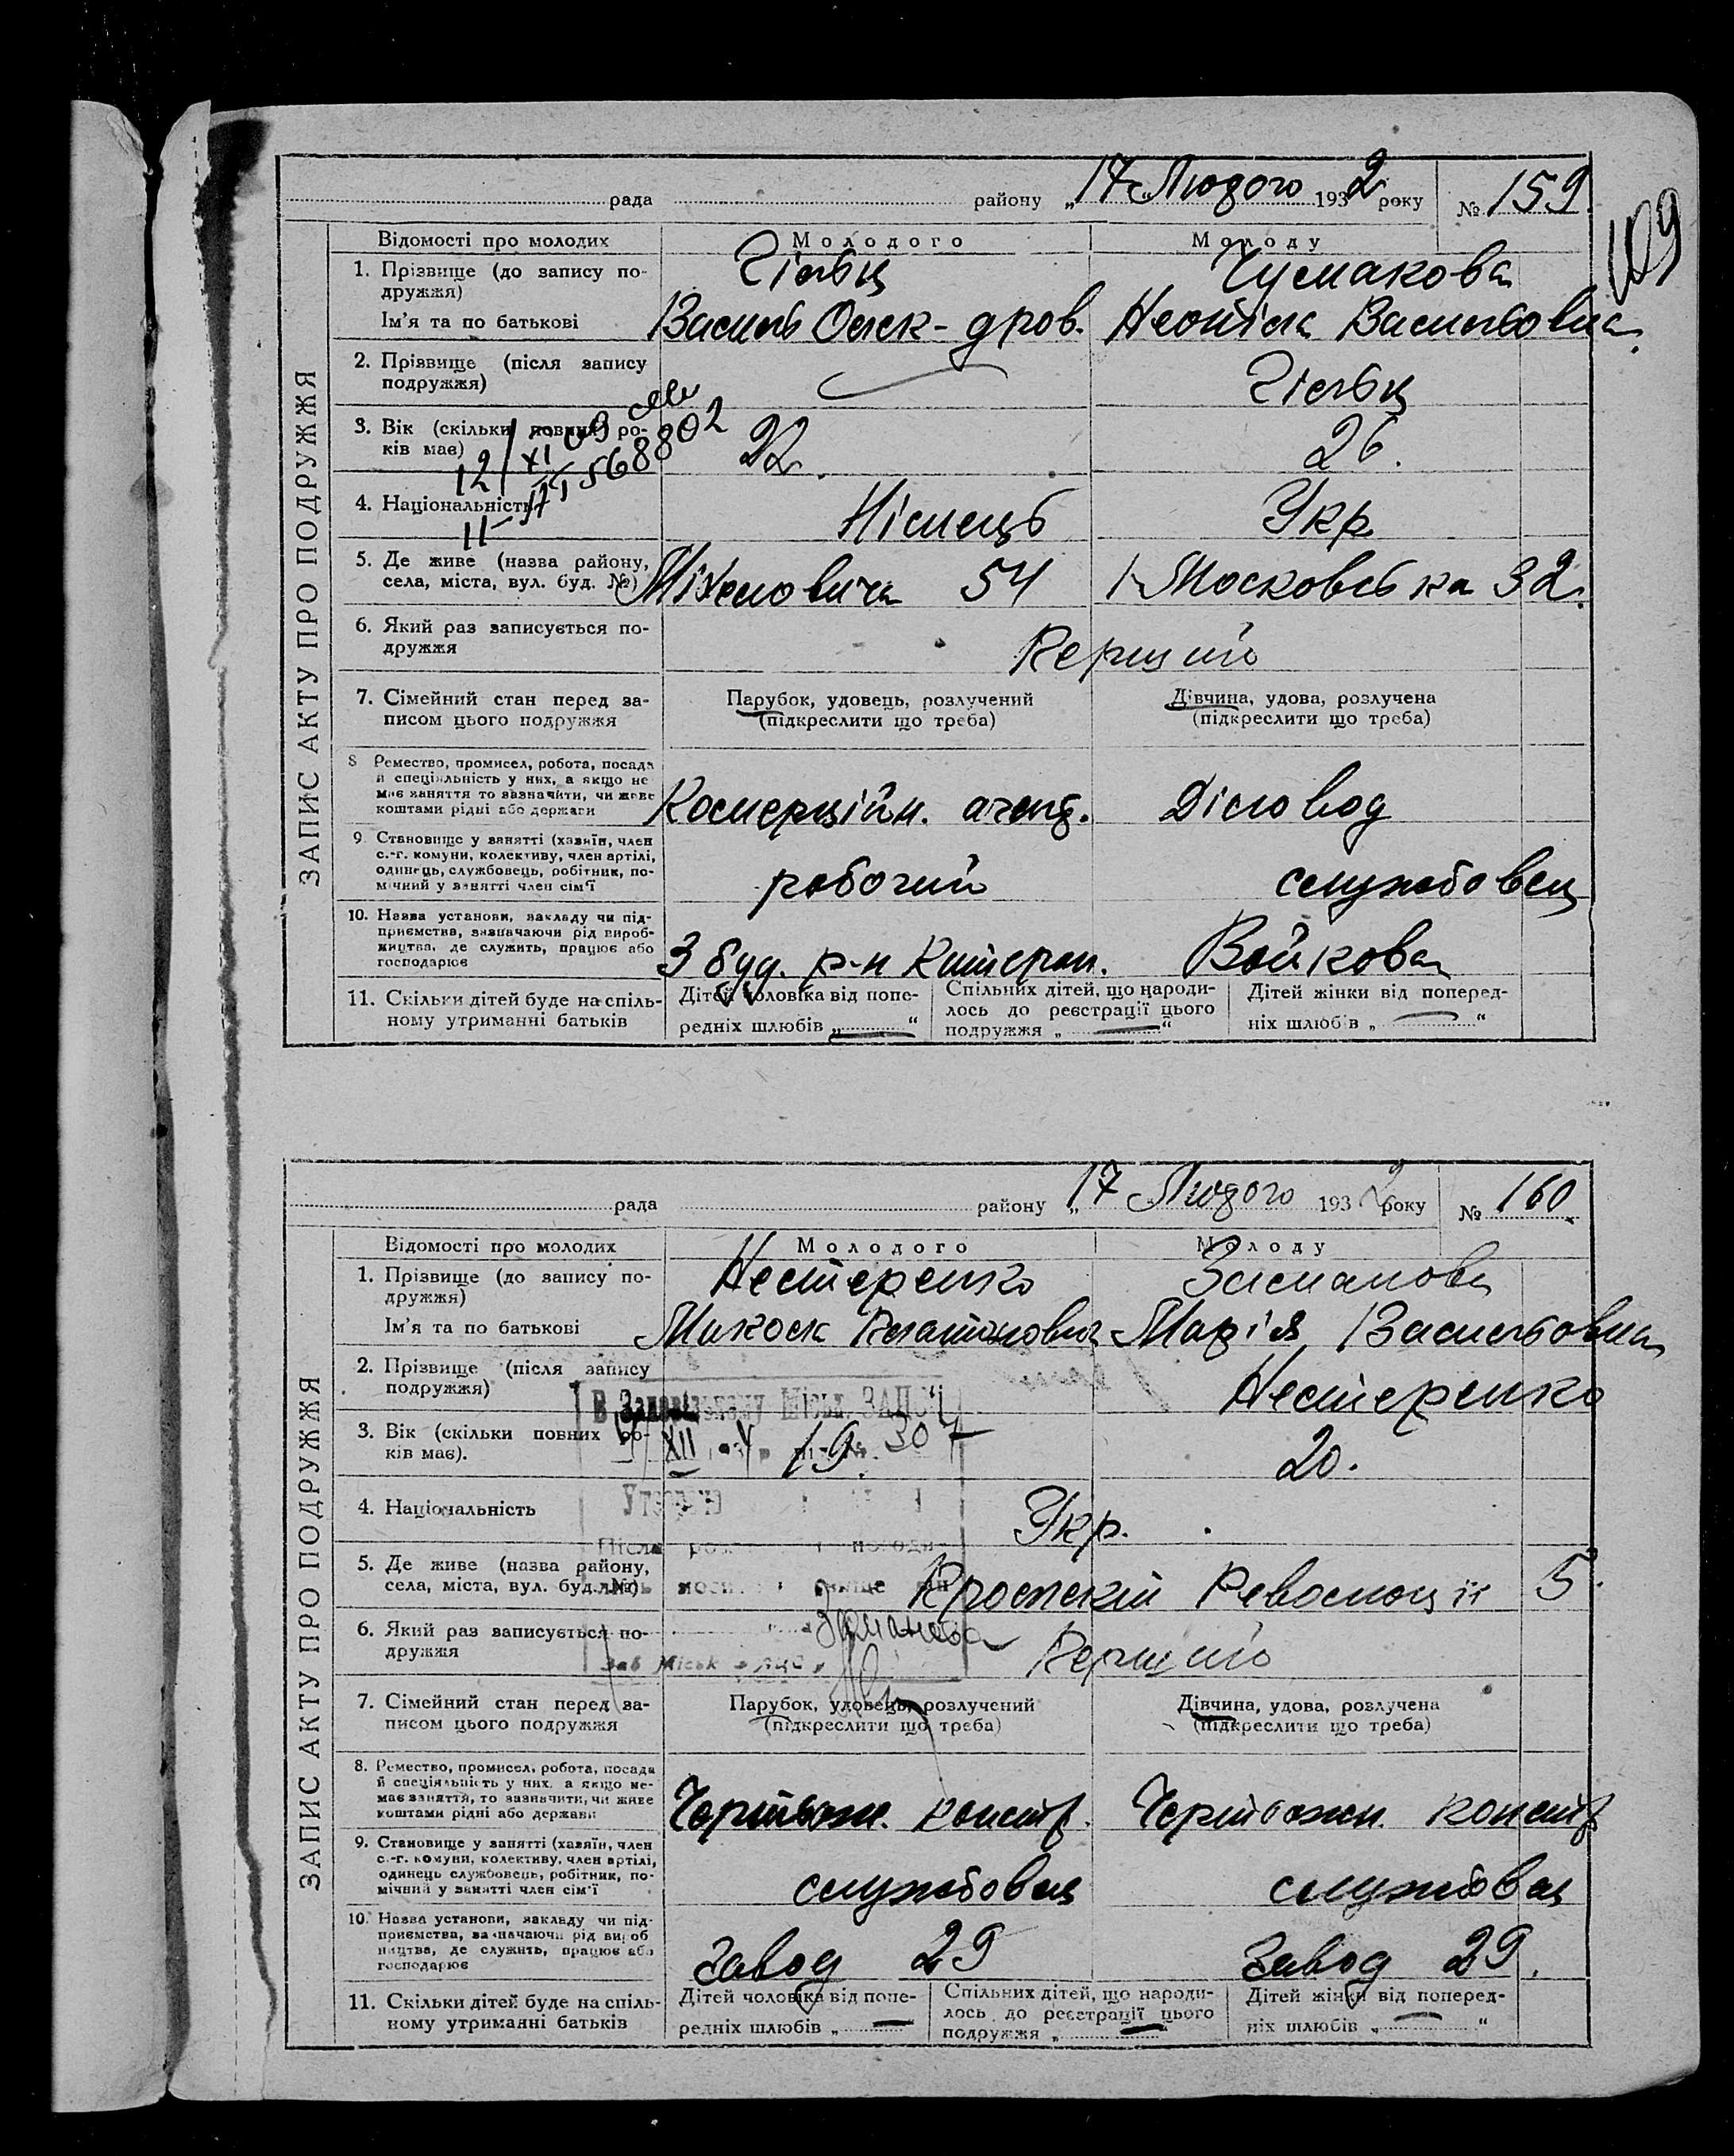 рада району „17" Лютого 1932 року № 159.
109
ЗАПИС АКТУ ПРО ПОДРУЖЖЯ
Відомості про молодих Молодого Молоду
1. Прізвище (до запису по- Гільц Чумакова
дружжя)
Ім'я та по батькові Василь Олек-дров. Неоніла Васильовна
2. Прізвище (після запису Гільц
подружжя)
3. Вік (скільки повних ро- 22. 26.
ків має)
4. Національність Німець Укр
5. Де живе (назва району,
села, міста, вул. буд. №) 54 Московська 32.
6. Який раз записується по- Перший
дружжя
7. Сімейний стан перед за- Парубок, удовець, розлучений Дівчина, удова, розлучена
писом цього подружжя (підкреслити що треба) (підкреслити що треба)
8 Ремество, промисел, робота, посада
й спеціяльність у них, а якщо не
має заняття то зазначити, чи живе
коштами рідні або держави Комерційн. агент. Діловод
9. Становище у занятті (хазяїн, член
с.-г. комуни, колективу, член артілі,
одинець, службовець, робітник, по-
мічний у занятті член сім'ї робочий службовец
10. Назва установи, закладу чи під-
приємства, зазначаючи рід вироб-
ництва, де служить, працює або
господарює 3 буд. р-н Войкова
11. Скільки дітей буде на спіль- Дітей чоловіка від попе- Спільних дітей, що народи- Дітей жінки від поперед-
ному утриманні батьків редніх шлюбів „—" лось до реєстрації цього ніх шлюбів „—"
подружжя „—"
рада району „17" Лютого 1932 року № 160.
ЗАПИС АКТУ ПРО ПОДРУЖЖЯ
Відомості про молодих Молодого Молоду
1. Прізвище (до запису по- Нестеренко Заманова
дружжя)
Ім'я та по батькові Микола Платонович Марія Васильовна
2. Прізвище (після запису Нестеренко
подружжя)
3. Вік (скільки повних ро- 19. 20.
ків має).
4. Національність Укр.
5. Де живе (назва району,
села, міста, вул. буд. №) Революції 5.
Заманова
6. Який раз записується по- Перший
дружжя
7. Сімейний стан перед за- Парубок, удовець, розлучений Дівчина, удова, розлучена
писом цього подружжя (підкреслити що треба) (підкреслити що треба)
8. Ремество, промисел, робота, посада
й спеціяльність у них, а якщо не-
має заняття, то зазначити, чи живе
коштами рідні або держави Чертьожн. констр. Чертьожн. констр
9. Становище у занятті (хазяїн, член
с.-г. комуни, колективу, член артілі,
одинець службовець, робітник, по-
мічний у занятті член сім'ї службовец службовец
10. Назва установи, закладу чи під-
приємства, зазначаючи рід вироб
ництва, де служить, працює або
господарює Завод 29 Завод 29.
11. Скільки дітей буде на спіль- Дітей чоловіка від попе- Спільних дітей, що народи- Дітей жінки від поперед-
ному утриманні батьків редніх шлюбів „—" лось до реєстрації цього ніх шлюбів „—"
подружжя „—"